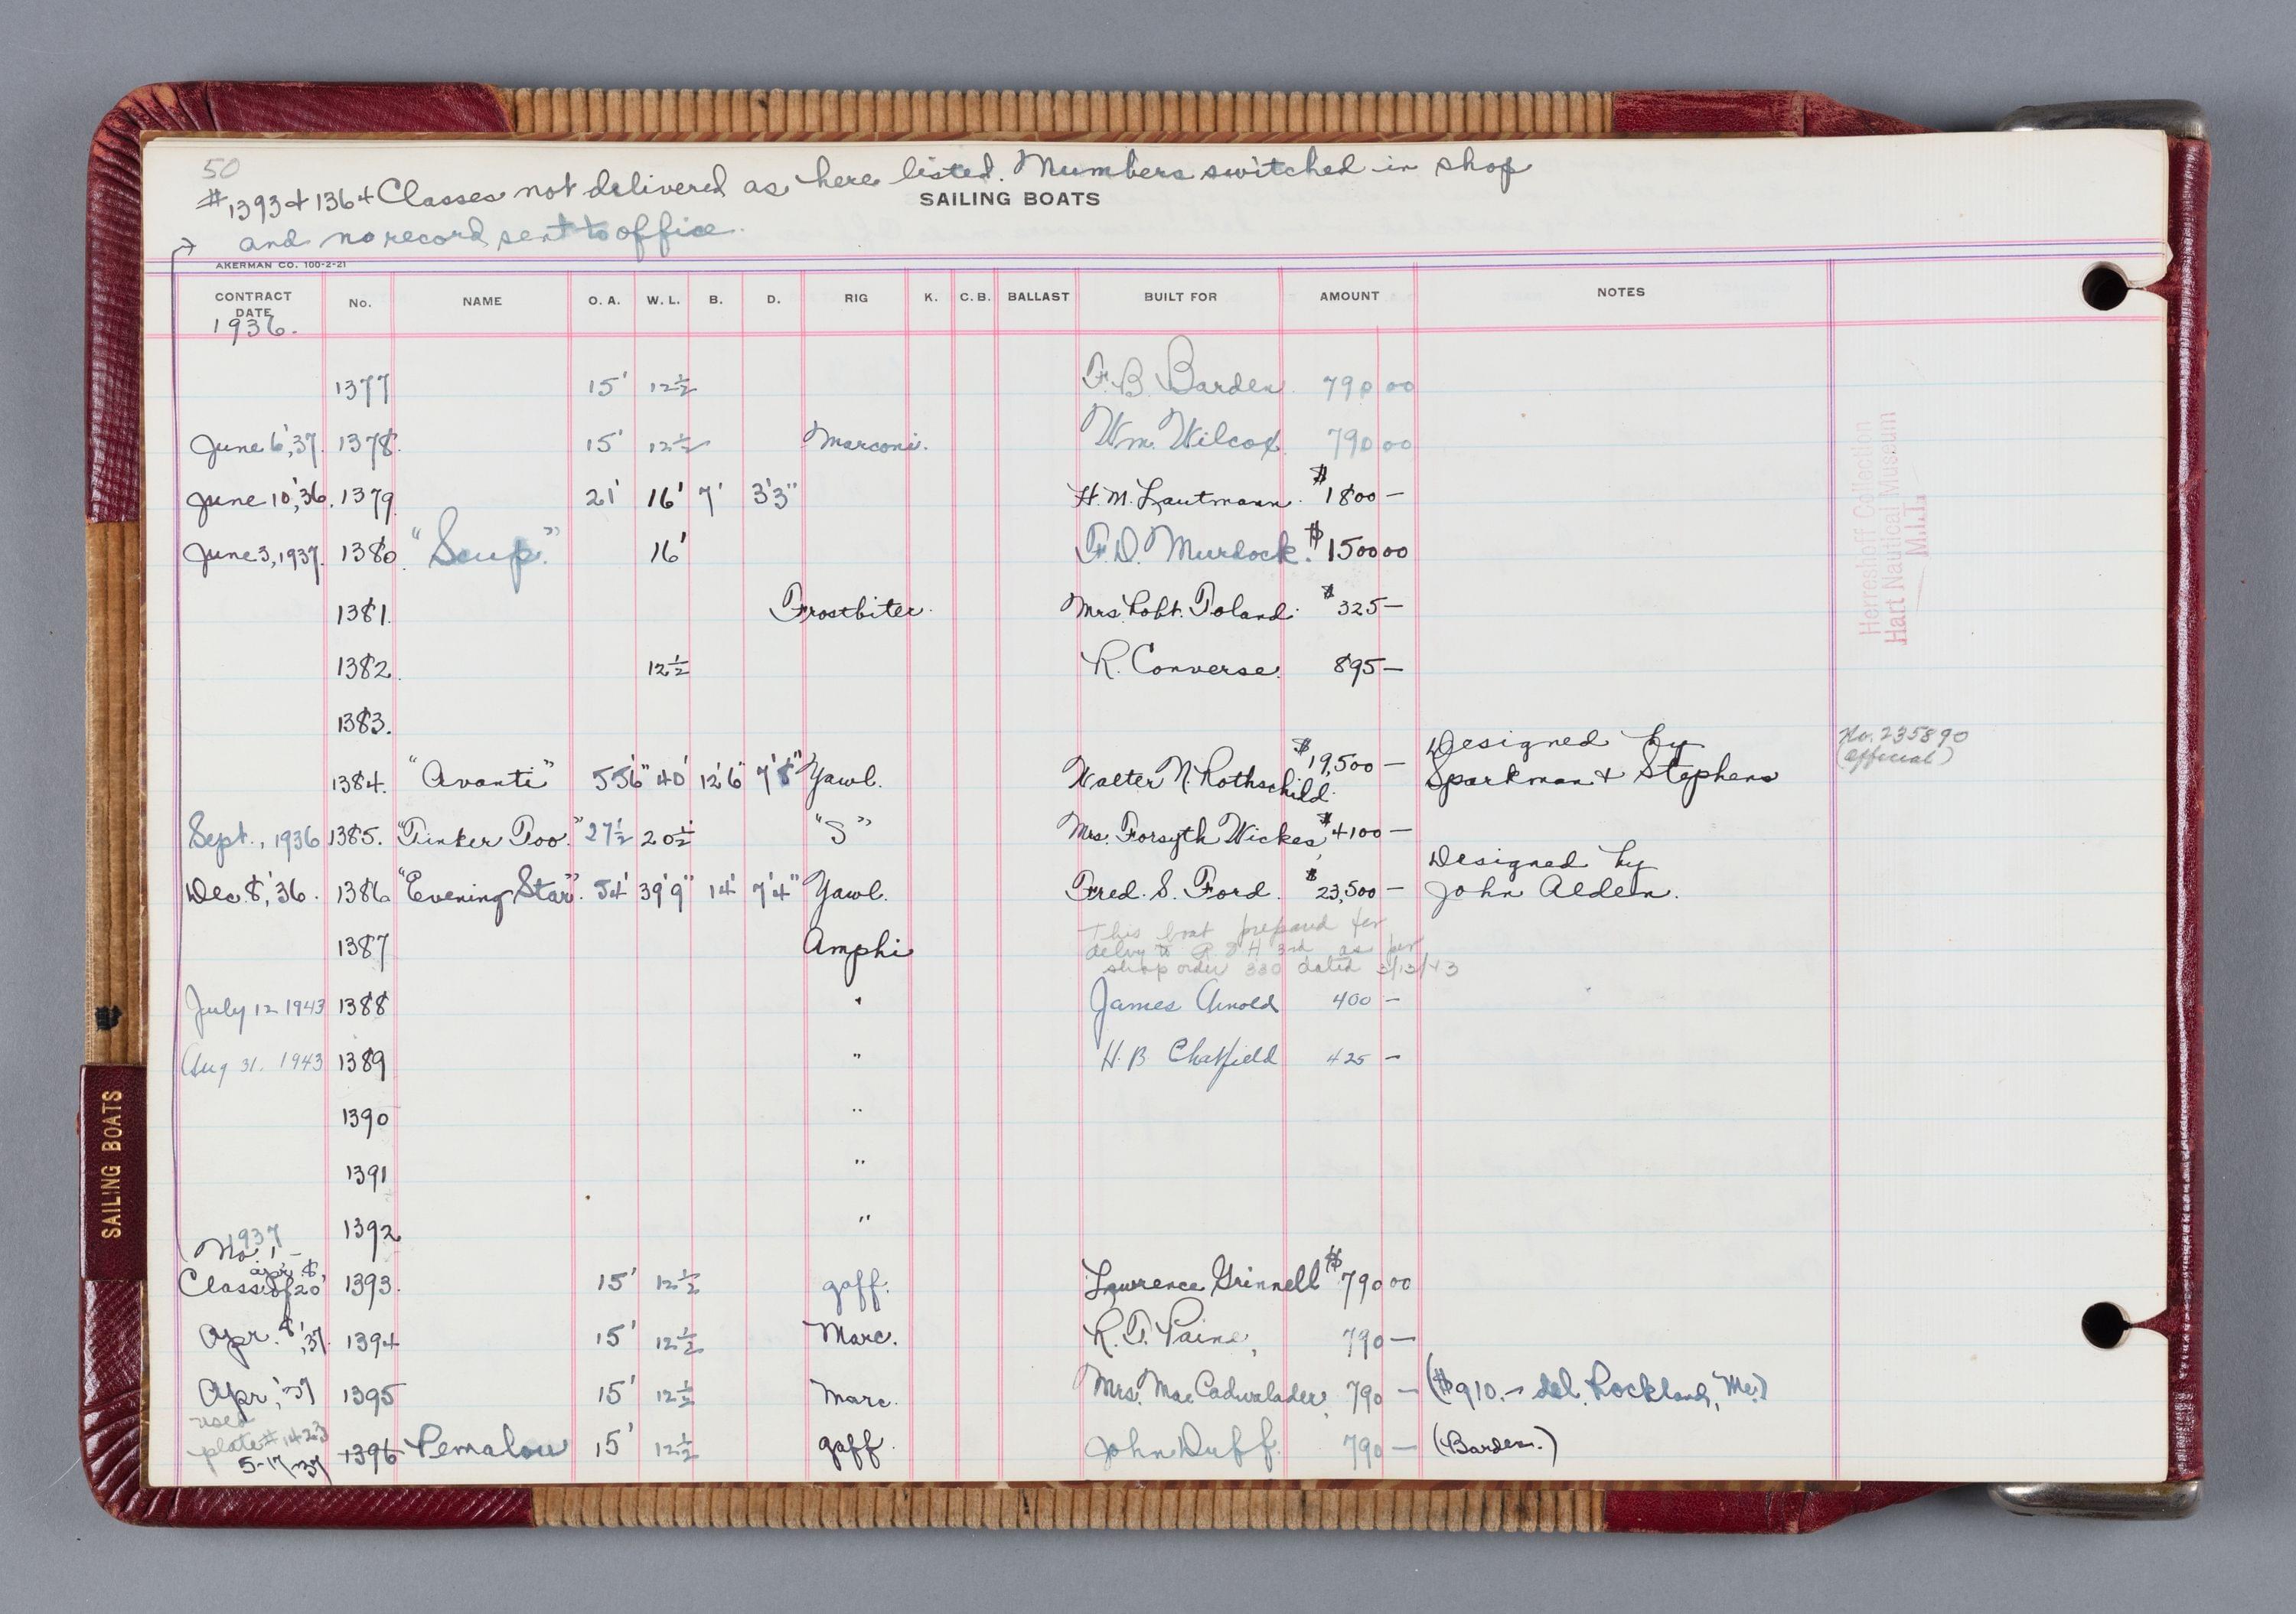 50
#1393 + 1364 Classes not delivered as here listed. Numbers switched in shop
SAILING BOATS
and no record sent to office.
AKERMAN CO. 100-2-21
CONTRACT DATE No. NAME O. A. W. L. B. D. RIG K. C. B. BALLAST BUILT FOR AMOUNT NOTES
1936.
1377 15' 12½ F. B. Barden. 790 00
June 6,'37. 1378. 15' 12½ Marconi. Wm. Wilcox 790 00
June 10,'36. 1379. 21' 16' 7' 3'3" H. M. Lautmann. $1800 —
June 3, 1937. 1380. "Scup." 16' F. D. Murdock. $1500 00
1381. Frostbiter. Mrs. Robt. Toland. $325 —
1382. 12½ R. Converse. 895 —
1383.
1384. "Avanti" 55'6" 40' 12'6" 7'8" Yawl. Walter N. Rothschild. $19,500 — Designed by Sparkman & Stephens No. 235890 (official)
Sept., 1936 1385. "Tinker Too." 27½ 20½ "S" Mrs. Forsyth Wickes, $4100 —
Dec. 8,'36. 1386 "Evening Star". 54' 39'9" 14' 7'4" Yawl. Fred. S. Ford. $23,500 — Designed by John Alden.
1387 Amphi This boat prepared for
delvy to H 3rd as per
shop order 330 dated 3/13/43
July 12 1943 1388 " James Arnold 400 —
Aug 31. 1943 1389 " H. B. Chatfield 425 —
1390 "
1391 "
1392 "
1937
No. 1 —
Apr. 8,
Class of 20 1393. 15' 12½ gaff. Lawrence Grinnell $790 00
Apr. 8,'37. 1394 15' 12½ Marc. R. T. Paine, 790 —
Apr,'37 1395 15' 12½ Marc. Mrs. Mae Cadwalader, 790 — ($910.— del. Rockland, Me.)
used
plate #1423
5-17-37 1396 Pemalou 15' 12½ gaff. John Duff. 790 — (Barden.)
Herreshoff Collection
Hart Nautical Museum
M.I.T.
SAILING BOATS